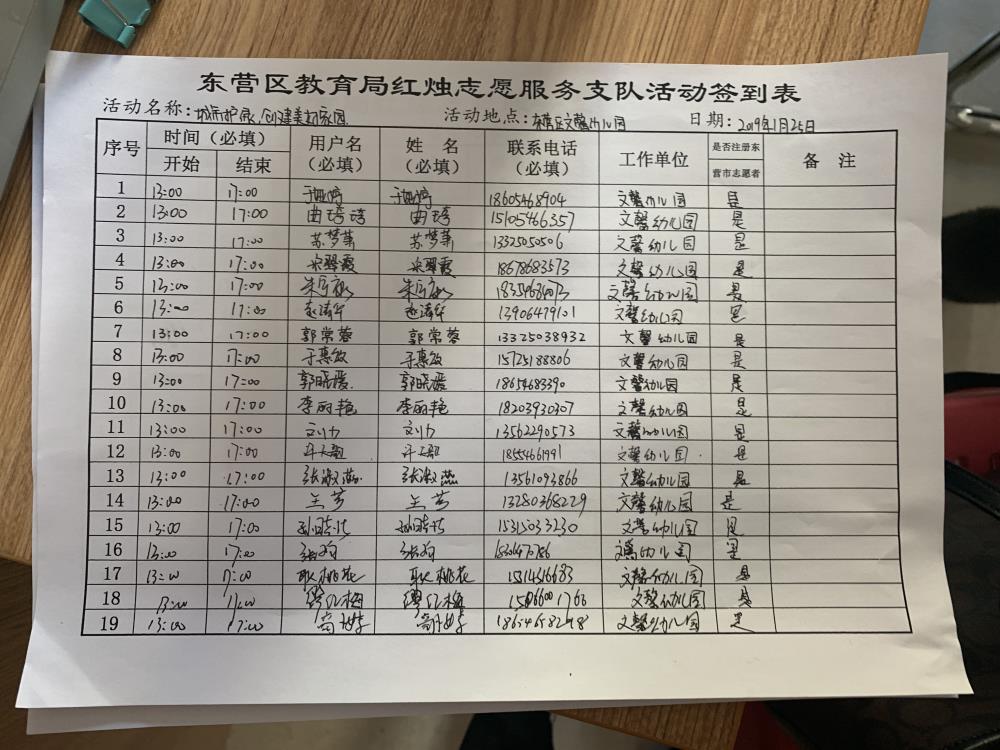 东营区教育局红烛志愿服务支队活动签到表
活动名称: 创建美好家园 活动地点: 东营区文馨幼儿园 日期: 2019年1月25日
序号 时间（必填） 用户名（必填） 姓名（必填） 联系电话（必填） 工作单位 是否注册东营市志愿者 备注
开始 结束
1 13:00 17:00 18605468904 文馨幼儿园 是
2 13:00 17:00 曲琦琦 曲琦 15105466357 文馨幼儿园 是
3 13:00 17:00 苏梦菊 苏梦菊 1332505506 文馨幼儿园 是
4 13:00 17:00 宋翠霞 宋翠霞 18678683573 文馨幼儿园 是
5 13:00 17:00 文馨幼儿园 是
6 13:00 17:00 赵清华 赵清华 13906479101 文馨幼儿园 是
7 13:00 17:00 郭常蓉 郭常蓉 13325038932 文馨幼儿园 是
8 13:00 17:00 于惠敏 于惠敏 15725188806 文馨幼儿园 是
9 13:00 17:00 郭晓媛 郭晓媛 18654683390 文馨幼儿园 是
10 13:00 17:00 李丽艳 李丽艳 18203930307 文馨幼儿园 是
11 13:00 17:00 刘力 刘力 13562290573 文馨幼儿园 是
12 13:00 17:00 18554661991 文馨幼儿园 是
13 13:00 17:00 张淑燕 张淑燕 13561093866 文馨幼儿园 是
14 13:00 17:00 王芳 王芳 13280368229 文馨幼儿园 是
15 13:00 17:00 15315033230 文馨幼儿园 是
16 13:00 17:00 文馨幼儿园 是
17 13:00 17:00 耿桃花 耿桃花 文馨幼儿园 是
18 13:00 17:00 文馨幼儿园 是
19 13:00 17:00 文馨幼儿园 是